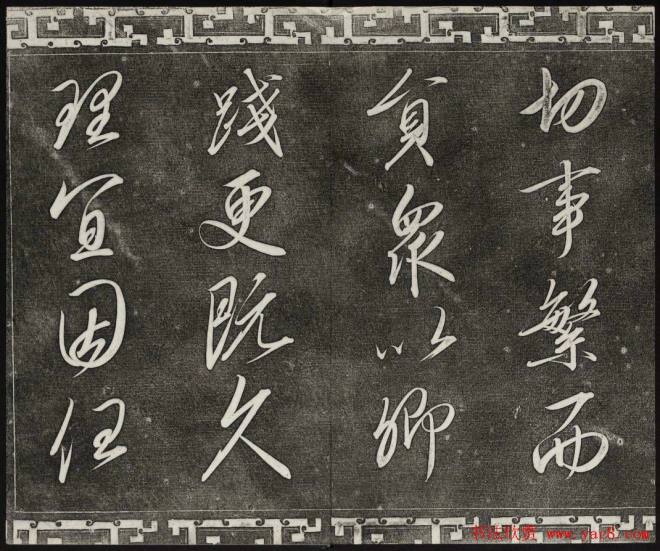 切事繁而
貟衆以卿
踐更既久
理宜因任
书法欣赏 www.yac8.com